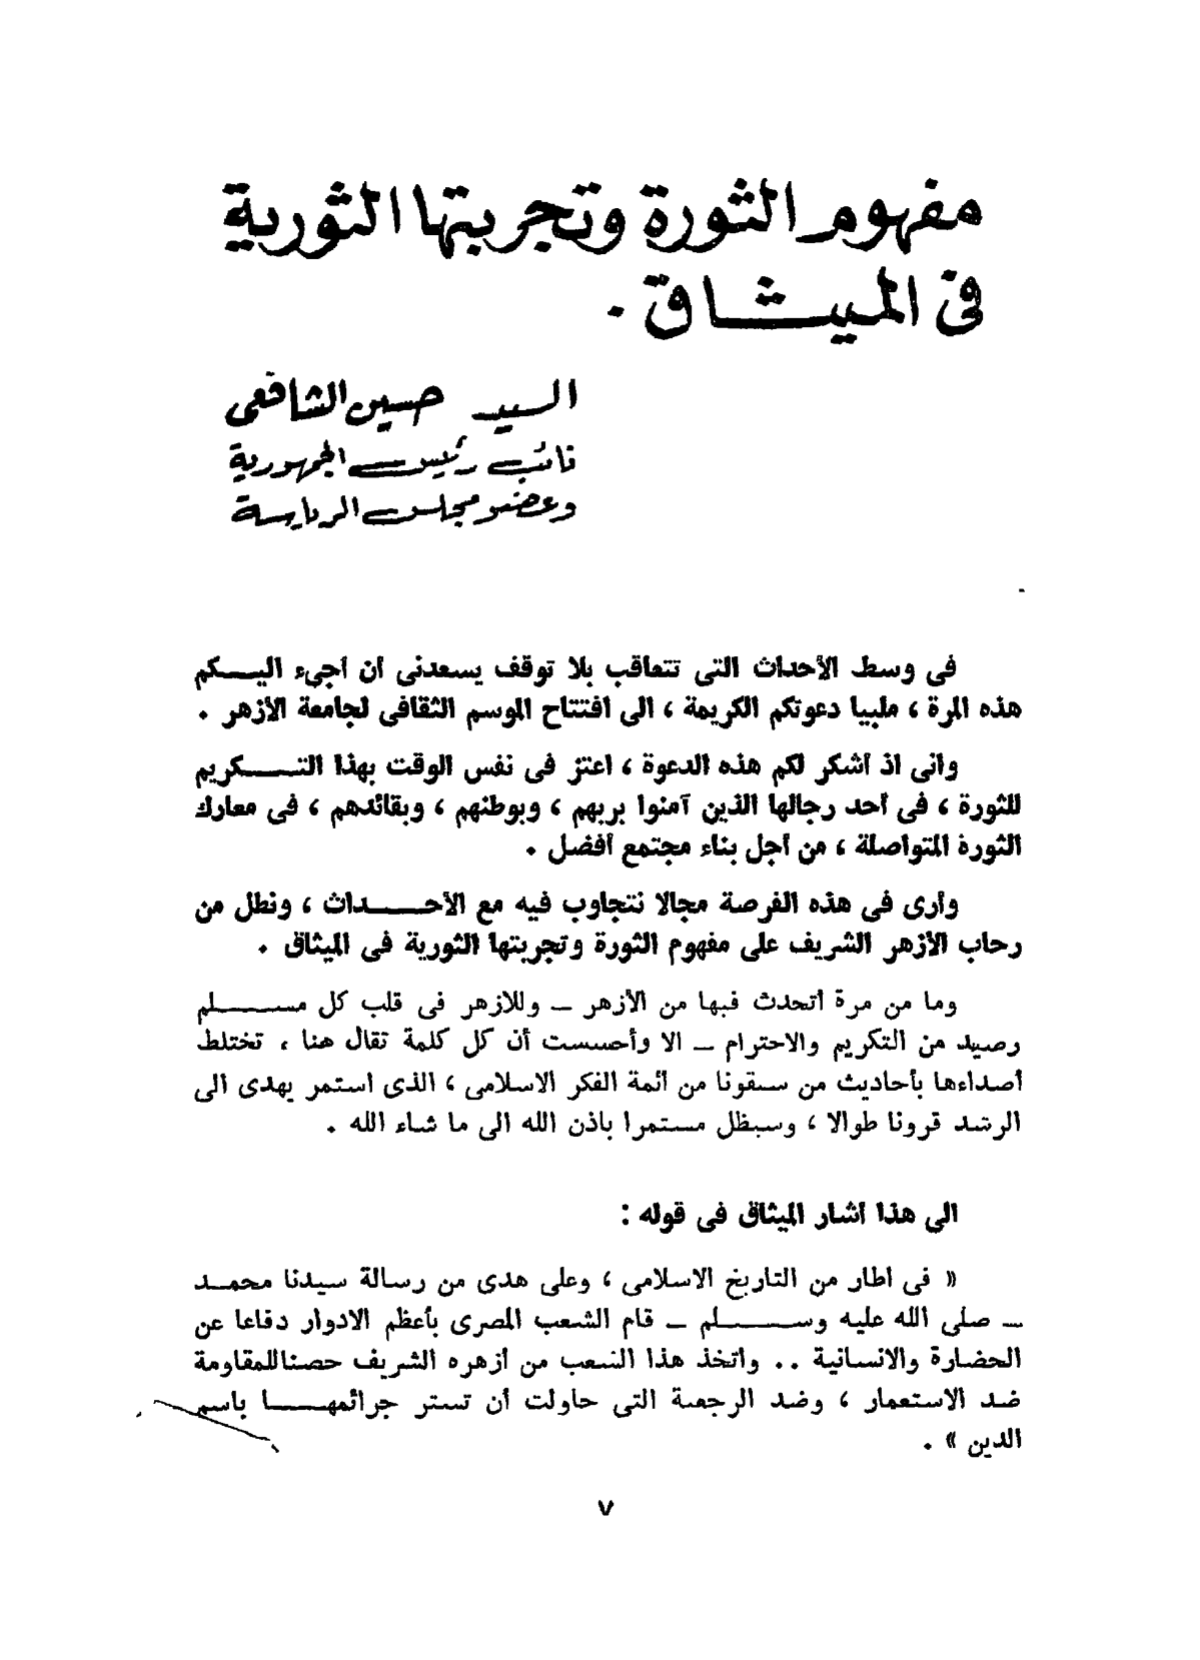 مفهوم الثورة وتجربتها الثورية
فى الميثاق .
السيد حسين الشافعى
نائب رئيس الجمهورية
وعضو مجلس الرياسة
فى وسط الأحداث التى تتعاقب بلا توقف يسعدنى أن أجىء اليكم
هذه المرة ، ملبيا دعوتكم الكريمة ، الى افتتاح الموسم الثقافى لجامعة الأزهر .
وانى اذ أشكر لكم هذه الدعوة ، اعتز فى نفس الوقت بهذا التكريم
للثورة ، فى أحد رجالها الذين آمنوا بربهم ، وبوطنهم ، وبقائدهم ، فى معارك
الثورة المتواصلة ، من أجل بناء مجتمع أفضل .
وأرى فى هذه الفرصة مجالا نتجاوب فيه مع الأحداث ، ونطل من
رحاب الأزهر الشريف على مفهوم الثورة وتجربتها الثورية فى الميثاق .
وما من مرة أتحدث فيها من الأزهر – وللازهر فى قلب كل مسلم
رصيد من التكريم والاحترام – الا وأحسست أن كل كلمة تقال هنا ، تختلط
أصداءها بأحاديث من سبقونا من أئمة الفكر الاسلامى ، الذى استمر يهدى الى
الرشد قرونا طوالا ، وسيظل مستمرا باذن الله الى ما شاء الله .
الى هذا أشار الميثاق فى قوله :
« فى اطار من التاريخ الاسلامى ، وعلى هدى من رسالة سيدنا محمد
– صلى الله عليه وسلم – قام الشعب المصرى بأعظم الادوار دفاعا عن
الحضارة والانسانية .. واتخذ هذا الشعب من أزهره الشريف حصنا للمقاومة
ضد الاستعمار ، وضد الرجعية التى حاولت أن تستر جرائمها باسم
الدين » .
٧